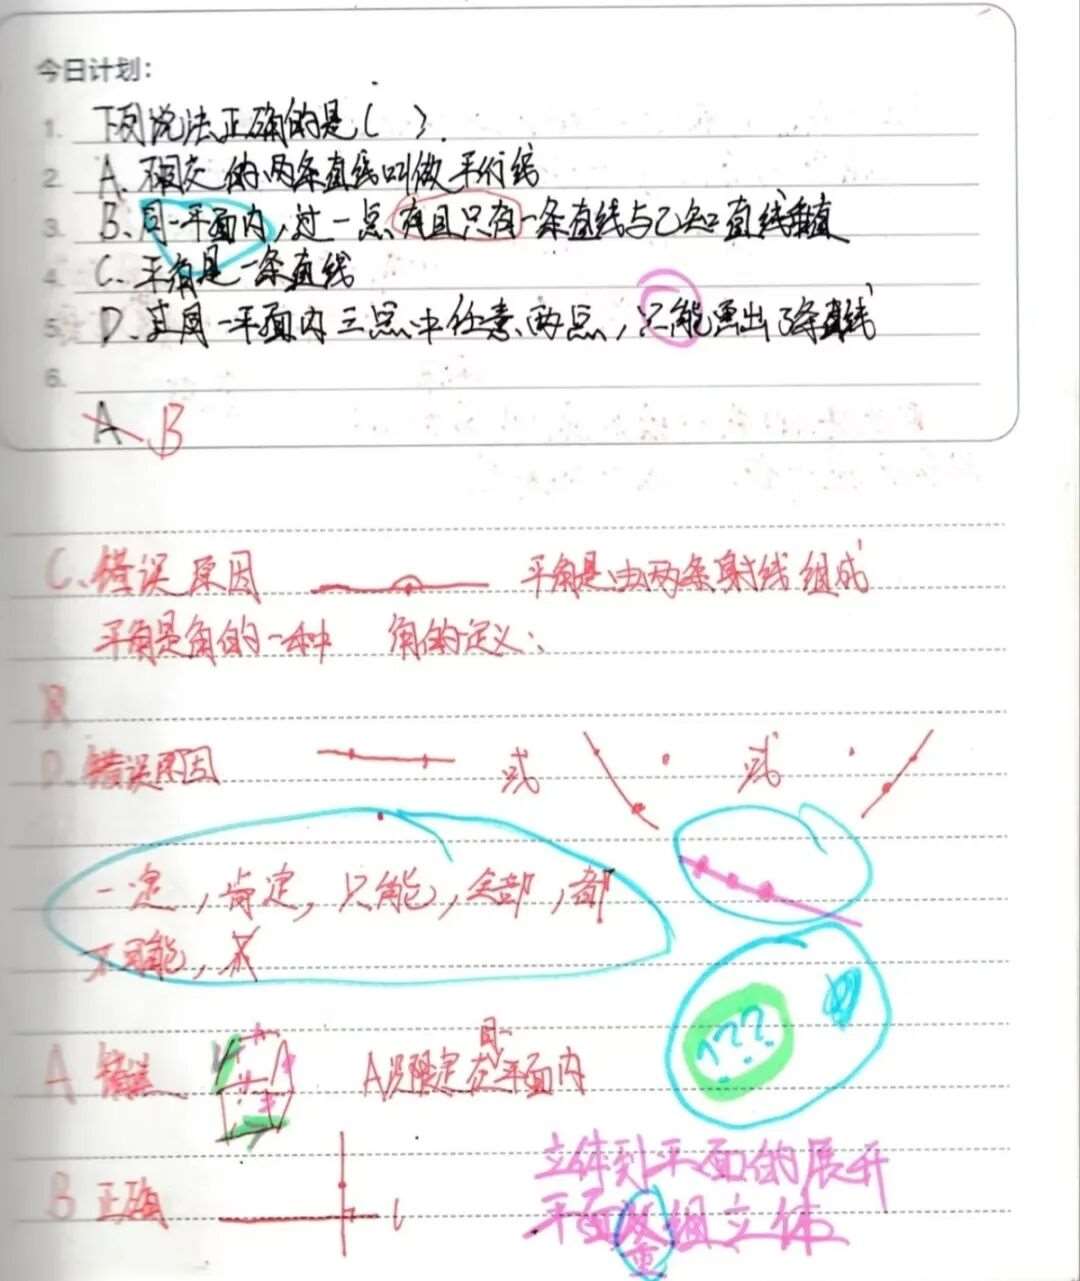 今日计划:
1. 下列说法正确的是( ).
2. A、不相交的两条直线叫做平行线
3. B、同一平面内,过一点有且只有一条直线与已知直线垂直
4. C、平角是一条直线
5. D、过同一平面内三点中任意两点,只能画出3条直线
6.
A B
C、错误原因 平角是由两条射线组成
平角是角的一种 角的定义:
D、错误原因 或 或
一定,肯定,只能,全部,都
不可能,
A 错误 A没限定在同一平面内
???
B 正确 l
立体到平面的展开
平面 组立体
重